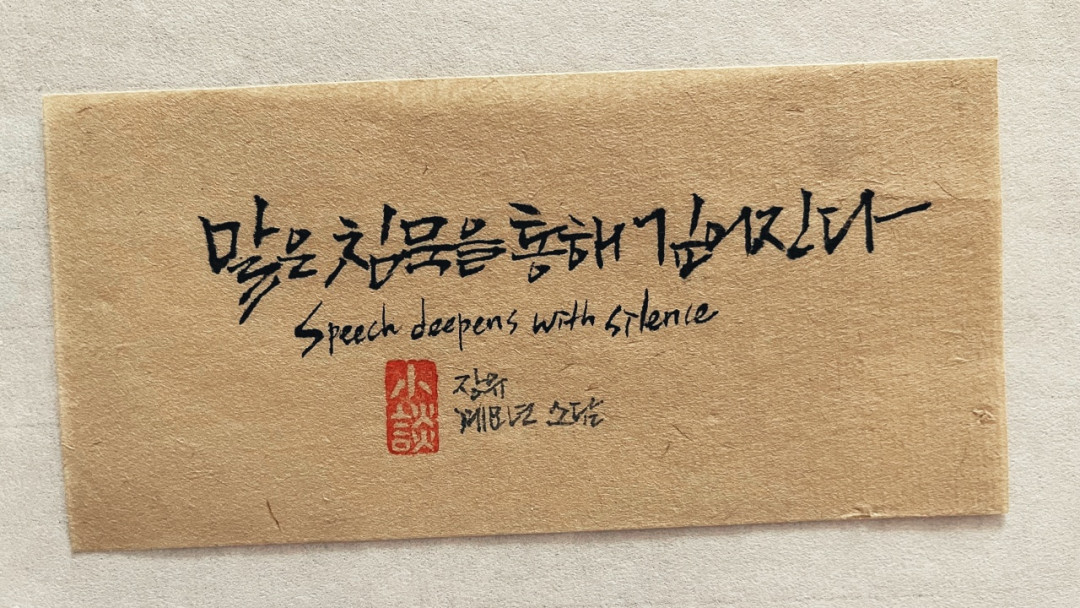 말은 침묵을 통해 깊어진다
Speech deepens with silence
小談
장유
계묘년 소담